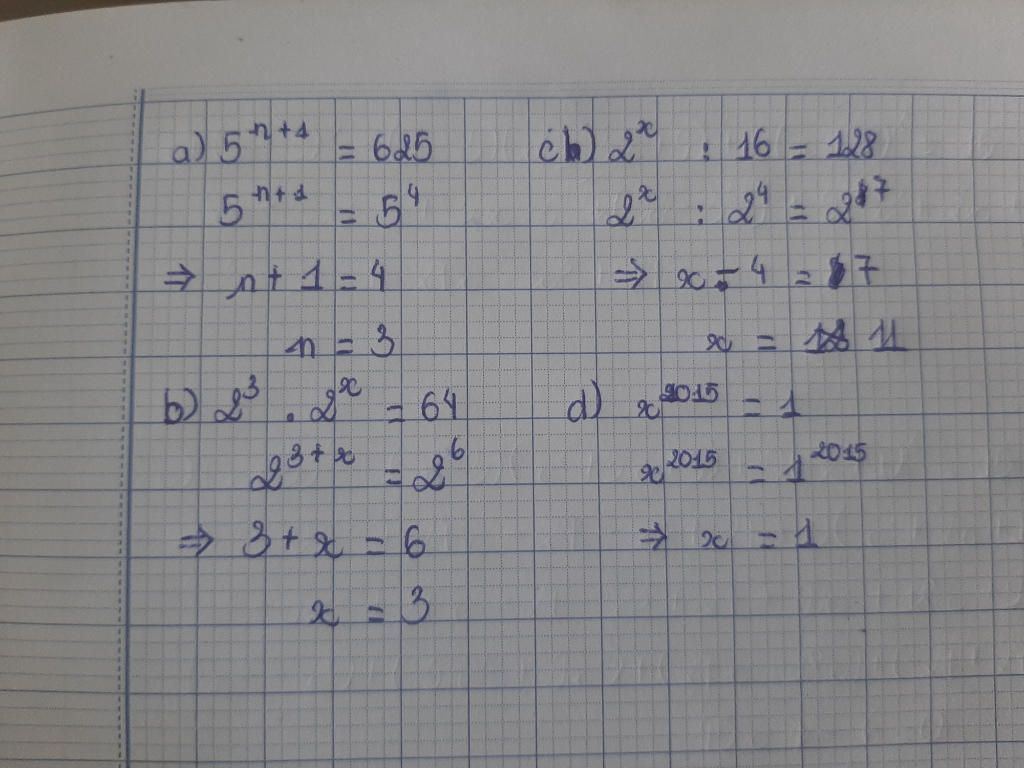 a) 5^{n+1} = 625
5^{n+1} = 5^4
⇒ n + 1 = 4
n = 3
b) 2^3 . 2^x = 64
2^{3+x} = 2^6
⇒ 3 + x = 6
x = 3
c) 2^x : 16 = 128
2^x : 2^4 = 2^7
⇒ x - 4 = 7
x = 11
d) x^{2015} = 1
x^{2015} = 1^{2015}
⇒ x = 1